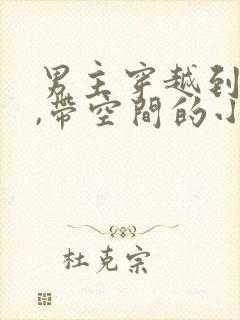 男主穿越到
,带空間的小
杜克宗